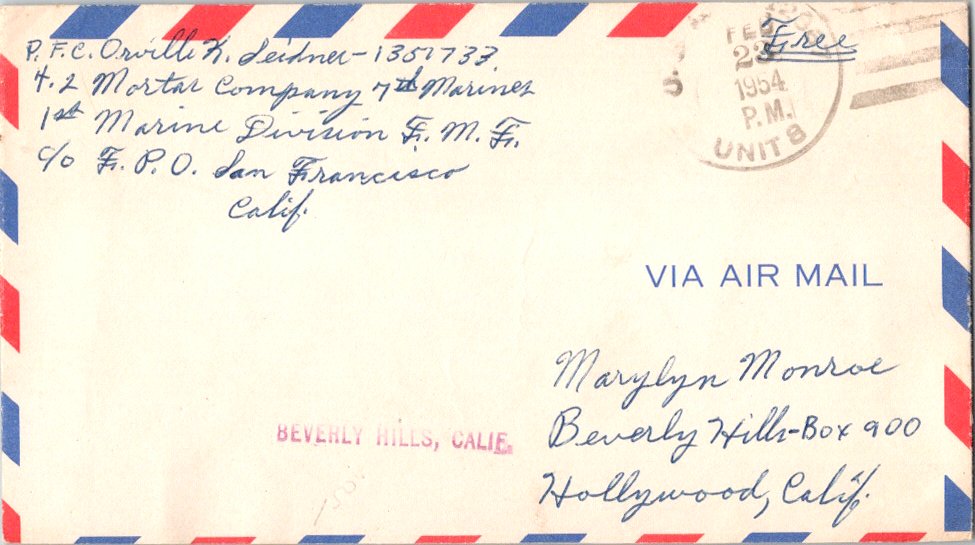 P.F.C. Orville K. Seidner-1351733
4.2 Mortar Company 7th Marines
1st Marine Division F.M.F.
c/o F.P.O. San Francisco
Calif.
Free
FEB
23
1954
P.M.
UNIT 8
VIA AIR MAIL
Marylyn Monroe
Beverly Hills-Box 900
Hollywood, Calif.
BEVERLY HILLS, CALIF.